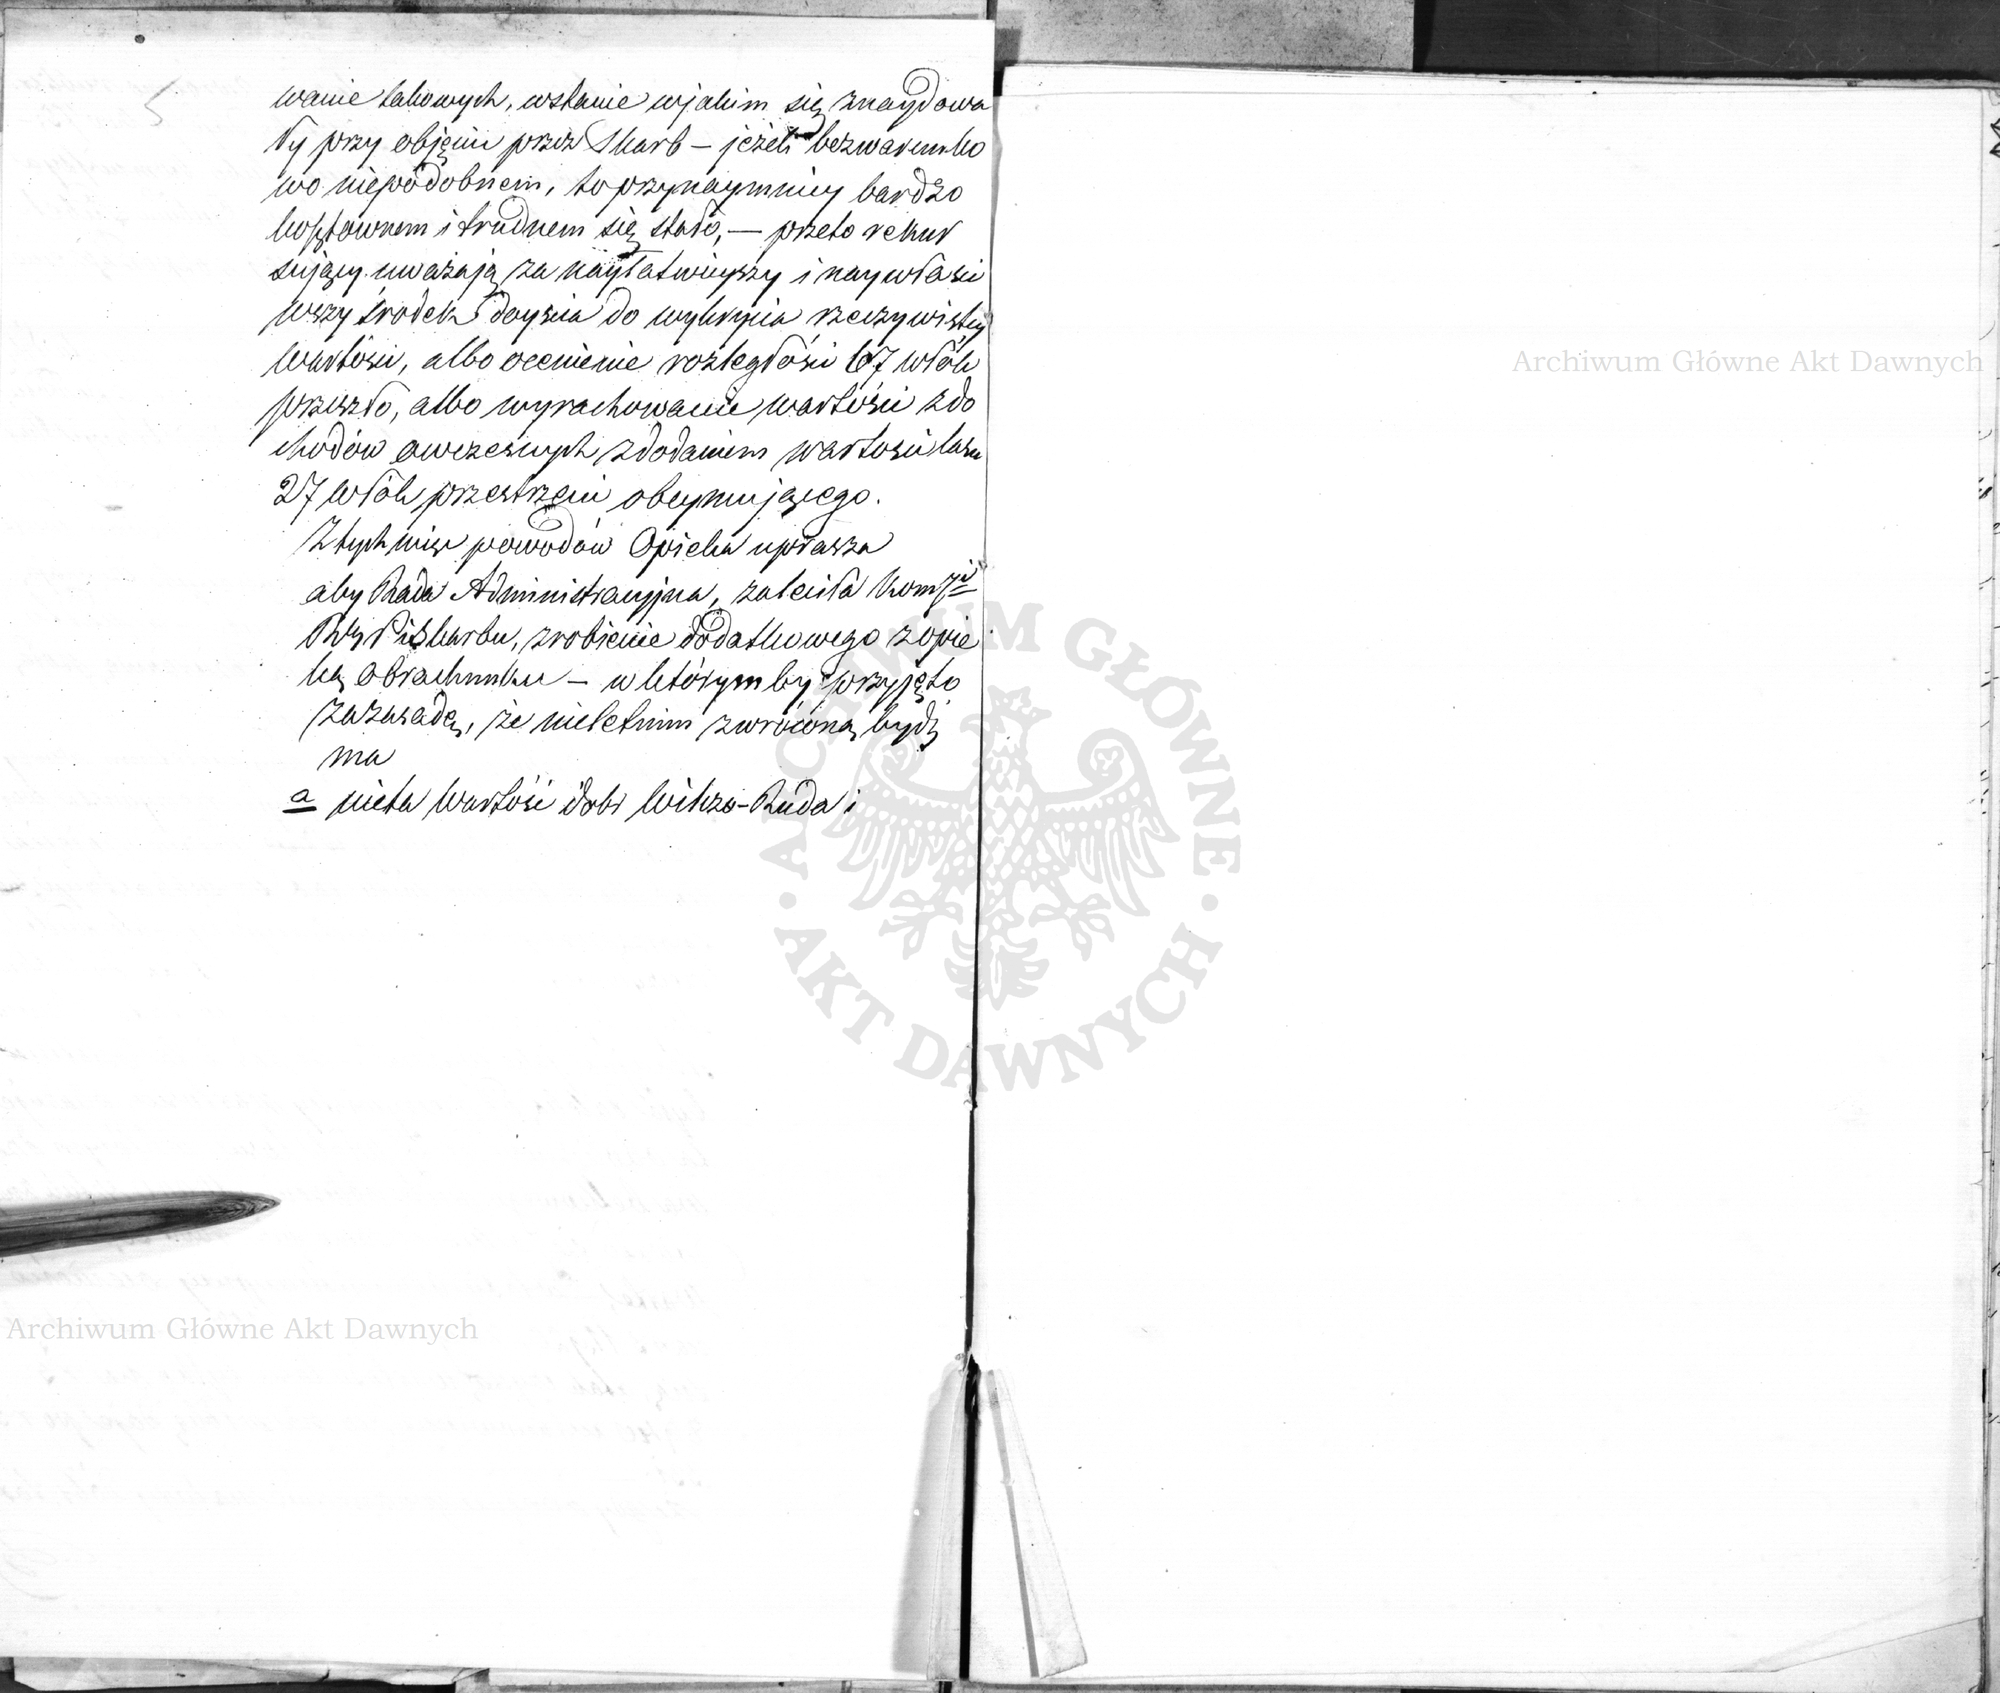 5
wanie takowych, wstanie wjakim się znaydowa
ły przy objęciu przez Skarb — jeżeli bezwarunko
wo niepodobnem, to przynaymniey bardzo
kosztownem i trudnem się stało, — przeto rekur
sujący uważają za nayłatwieyszy i naywłaści
wszy środek doyścia do wykrycia rzeczywistey
Wartości, albo ocenienie rozległości 67 włók
przeszło, albo wyrachowanie wartości zdo
chodów owczesnych zdodaniem wartości lasu
27 włók przestrzeni obeymującego.
Ztych więc powodów Opieka uprasza
aby Rada Administracyjna, zaleciła Komssyi
Rz Pi Skarbu, zrobienie dodatkowego zopie
ką Obrachunku — w którym by przyjęto
zazasadę, że nieletnim zwróconą bydź
ma
a nieta Wartość dobr Wilcza-Ruda i
Archiwum Główne Akt Dawnych
Archiwum Główne Akt Dawnych
ARCHIWUM GŁÓWNE · AKT DAWNYCH ·